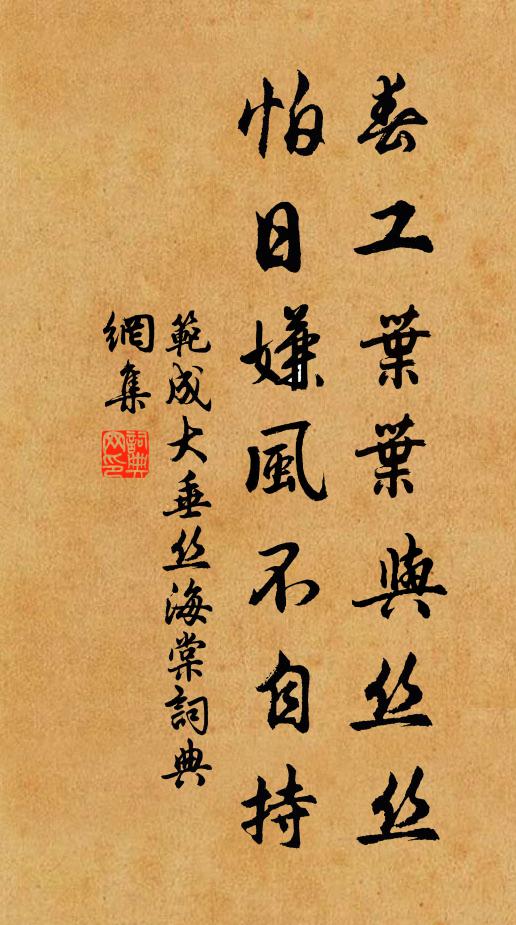 春工葉葉與丝丝
怕日嫌風不自持
範成大垂丝海棠詞典
網集
詞典
网印